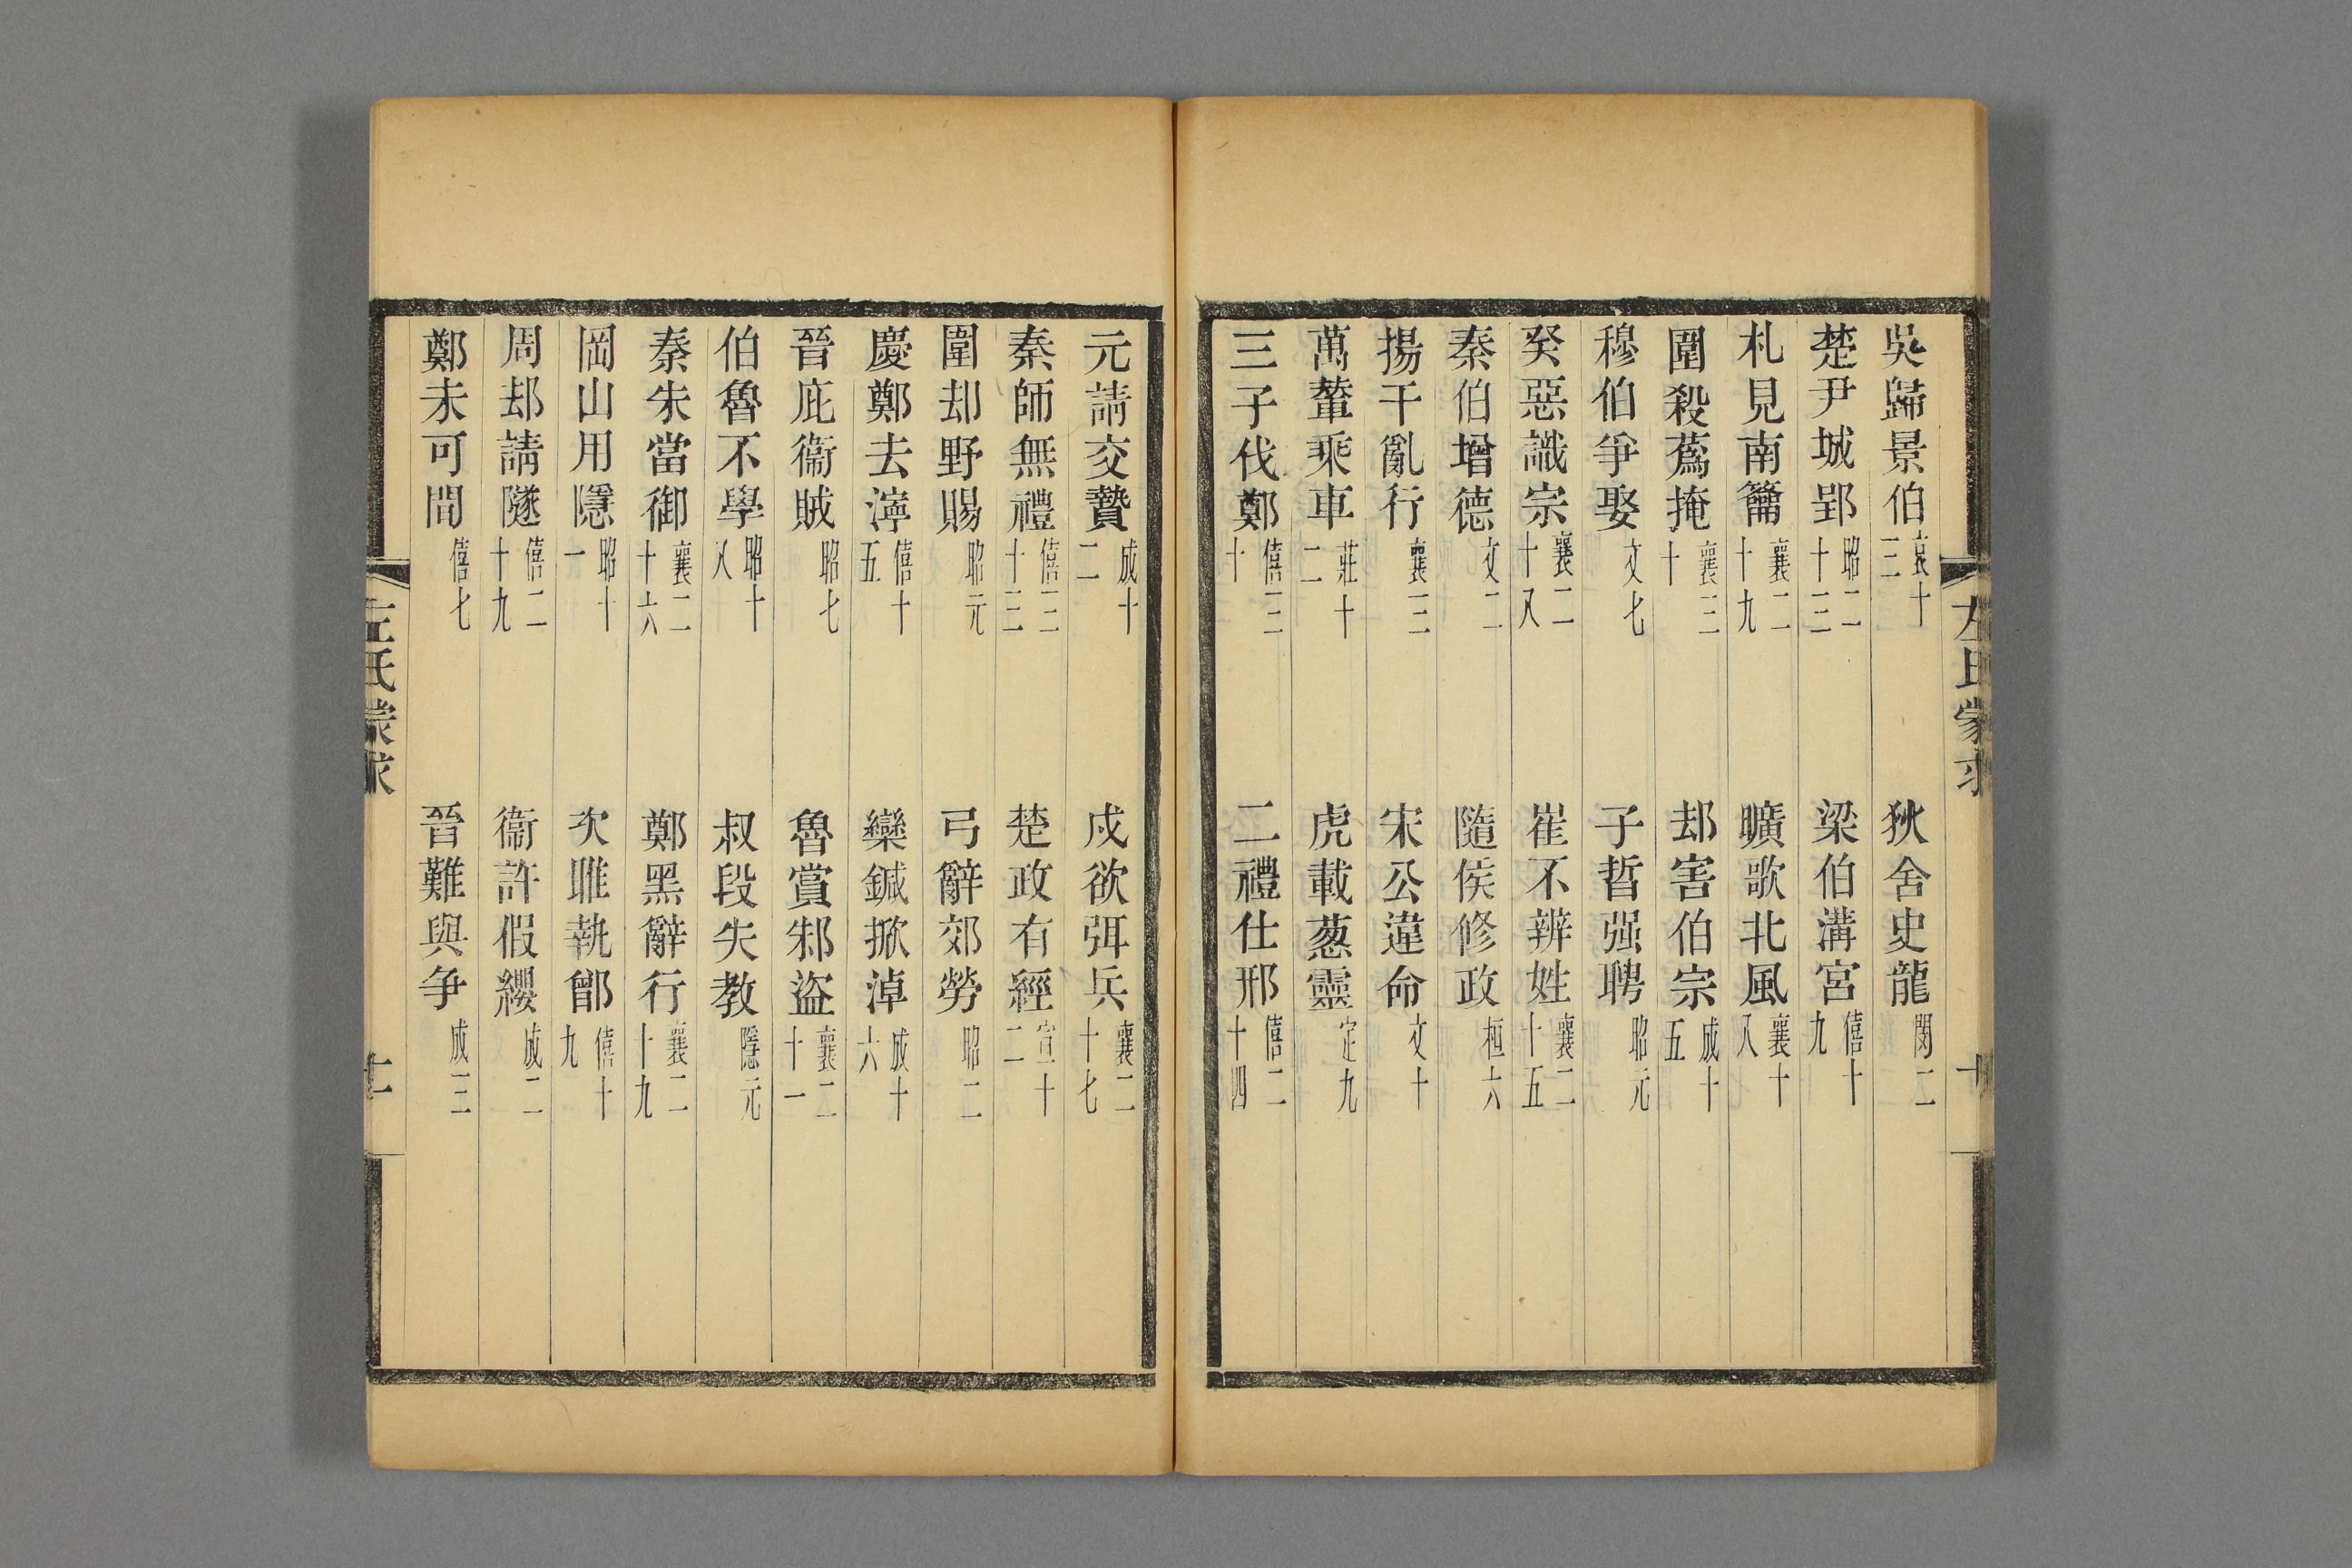 吳歸景伯哀十三　狄舍史龍閔二
楚尹城郢昭二十三　梁伯溝宮僖十九
札見南籥襄二十九　曠歌北風襄十八
圍殺蔿掩襄三十　郄害伯宗成十五
穆伯爭娶文七　子晳强聘昭元
癸惡識宗襄二十八　崔不辨姓襄二十五
秦伯增德文二　隨侯修政桓六
揚干亂行襄三　宋公違命文十
萬輦乘車莊十二　虎載葱靈定九
三子伐鄭僖三十　二禮仕邢僖二十四
元請交贄成十二　戍欲弭兵襄二十七
秦師無禮僖三十三　楚政有經宣十二
圍却野賜昭元　弓辭郊勞昭二
慶鄭去濘僖十五　欒鍼掀淖成十六
晉庇衞賊昭七　魯賞邾盜襄二十一
伯魯不學昭十八　叔段失教隱元
秦朱當御襄二十六　鄭黑辭行襄二十九
岡山用隱昭十一　次睢執鄫僖十九
周却請隧僖二十九　衞許假纓成二
鄭未可間僖七　晉難與爭成三
左氏蒙求